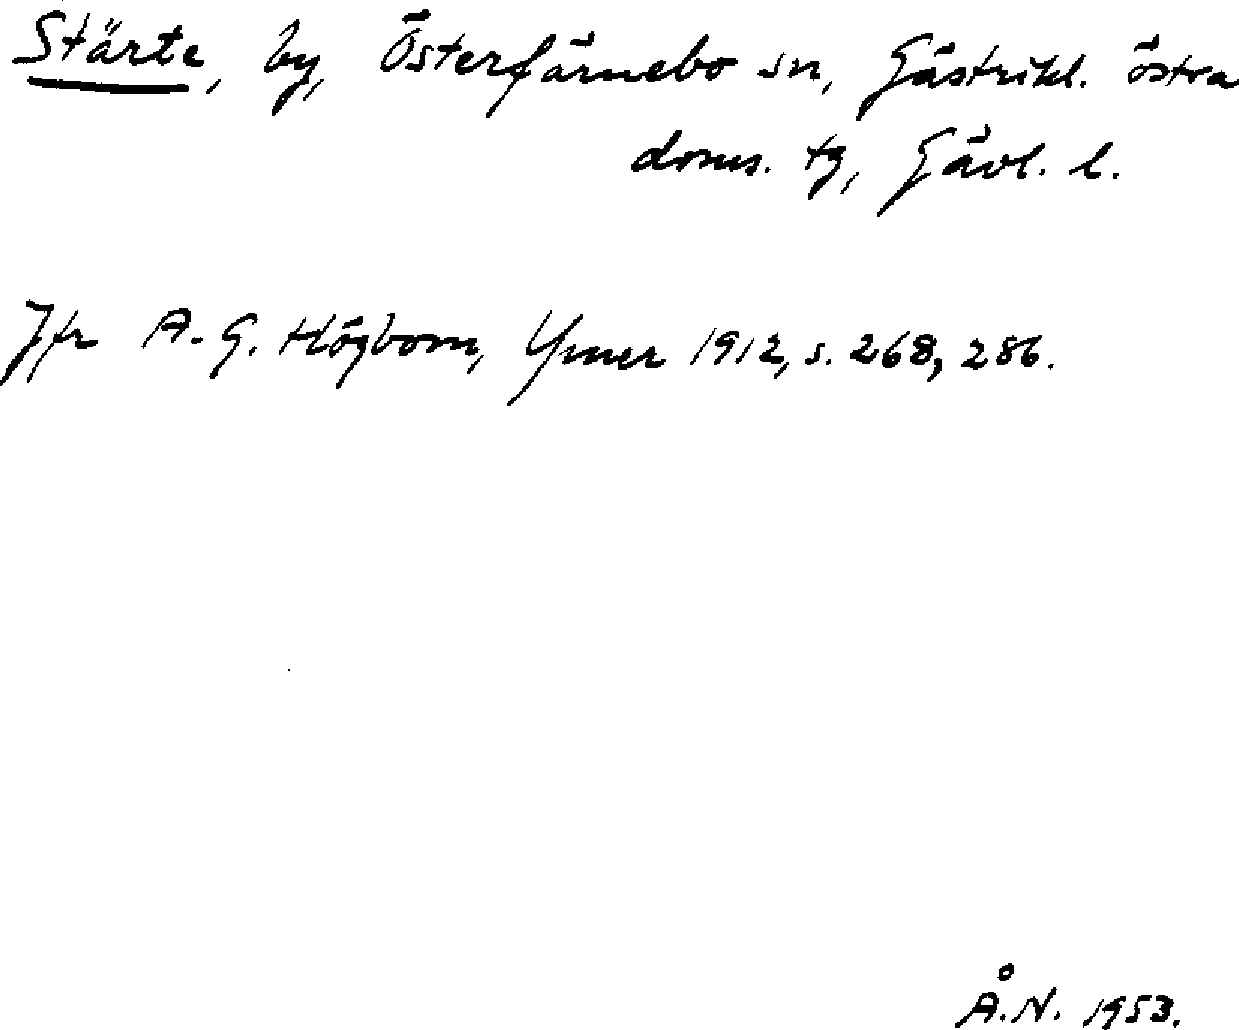 Stärte, by, Österfärnebo sn, Gästrikl. östra
doms. tg, Gävl. l.
Jfr A. G. Högbom, Ymer 1912, s. 268, 286.
Å.N. 1953.